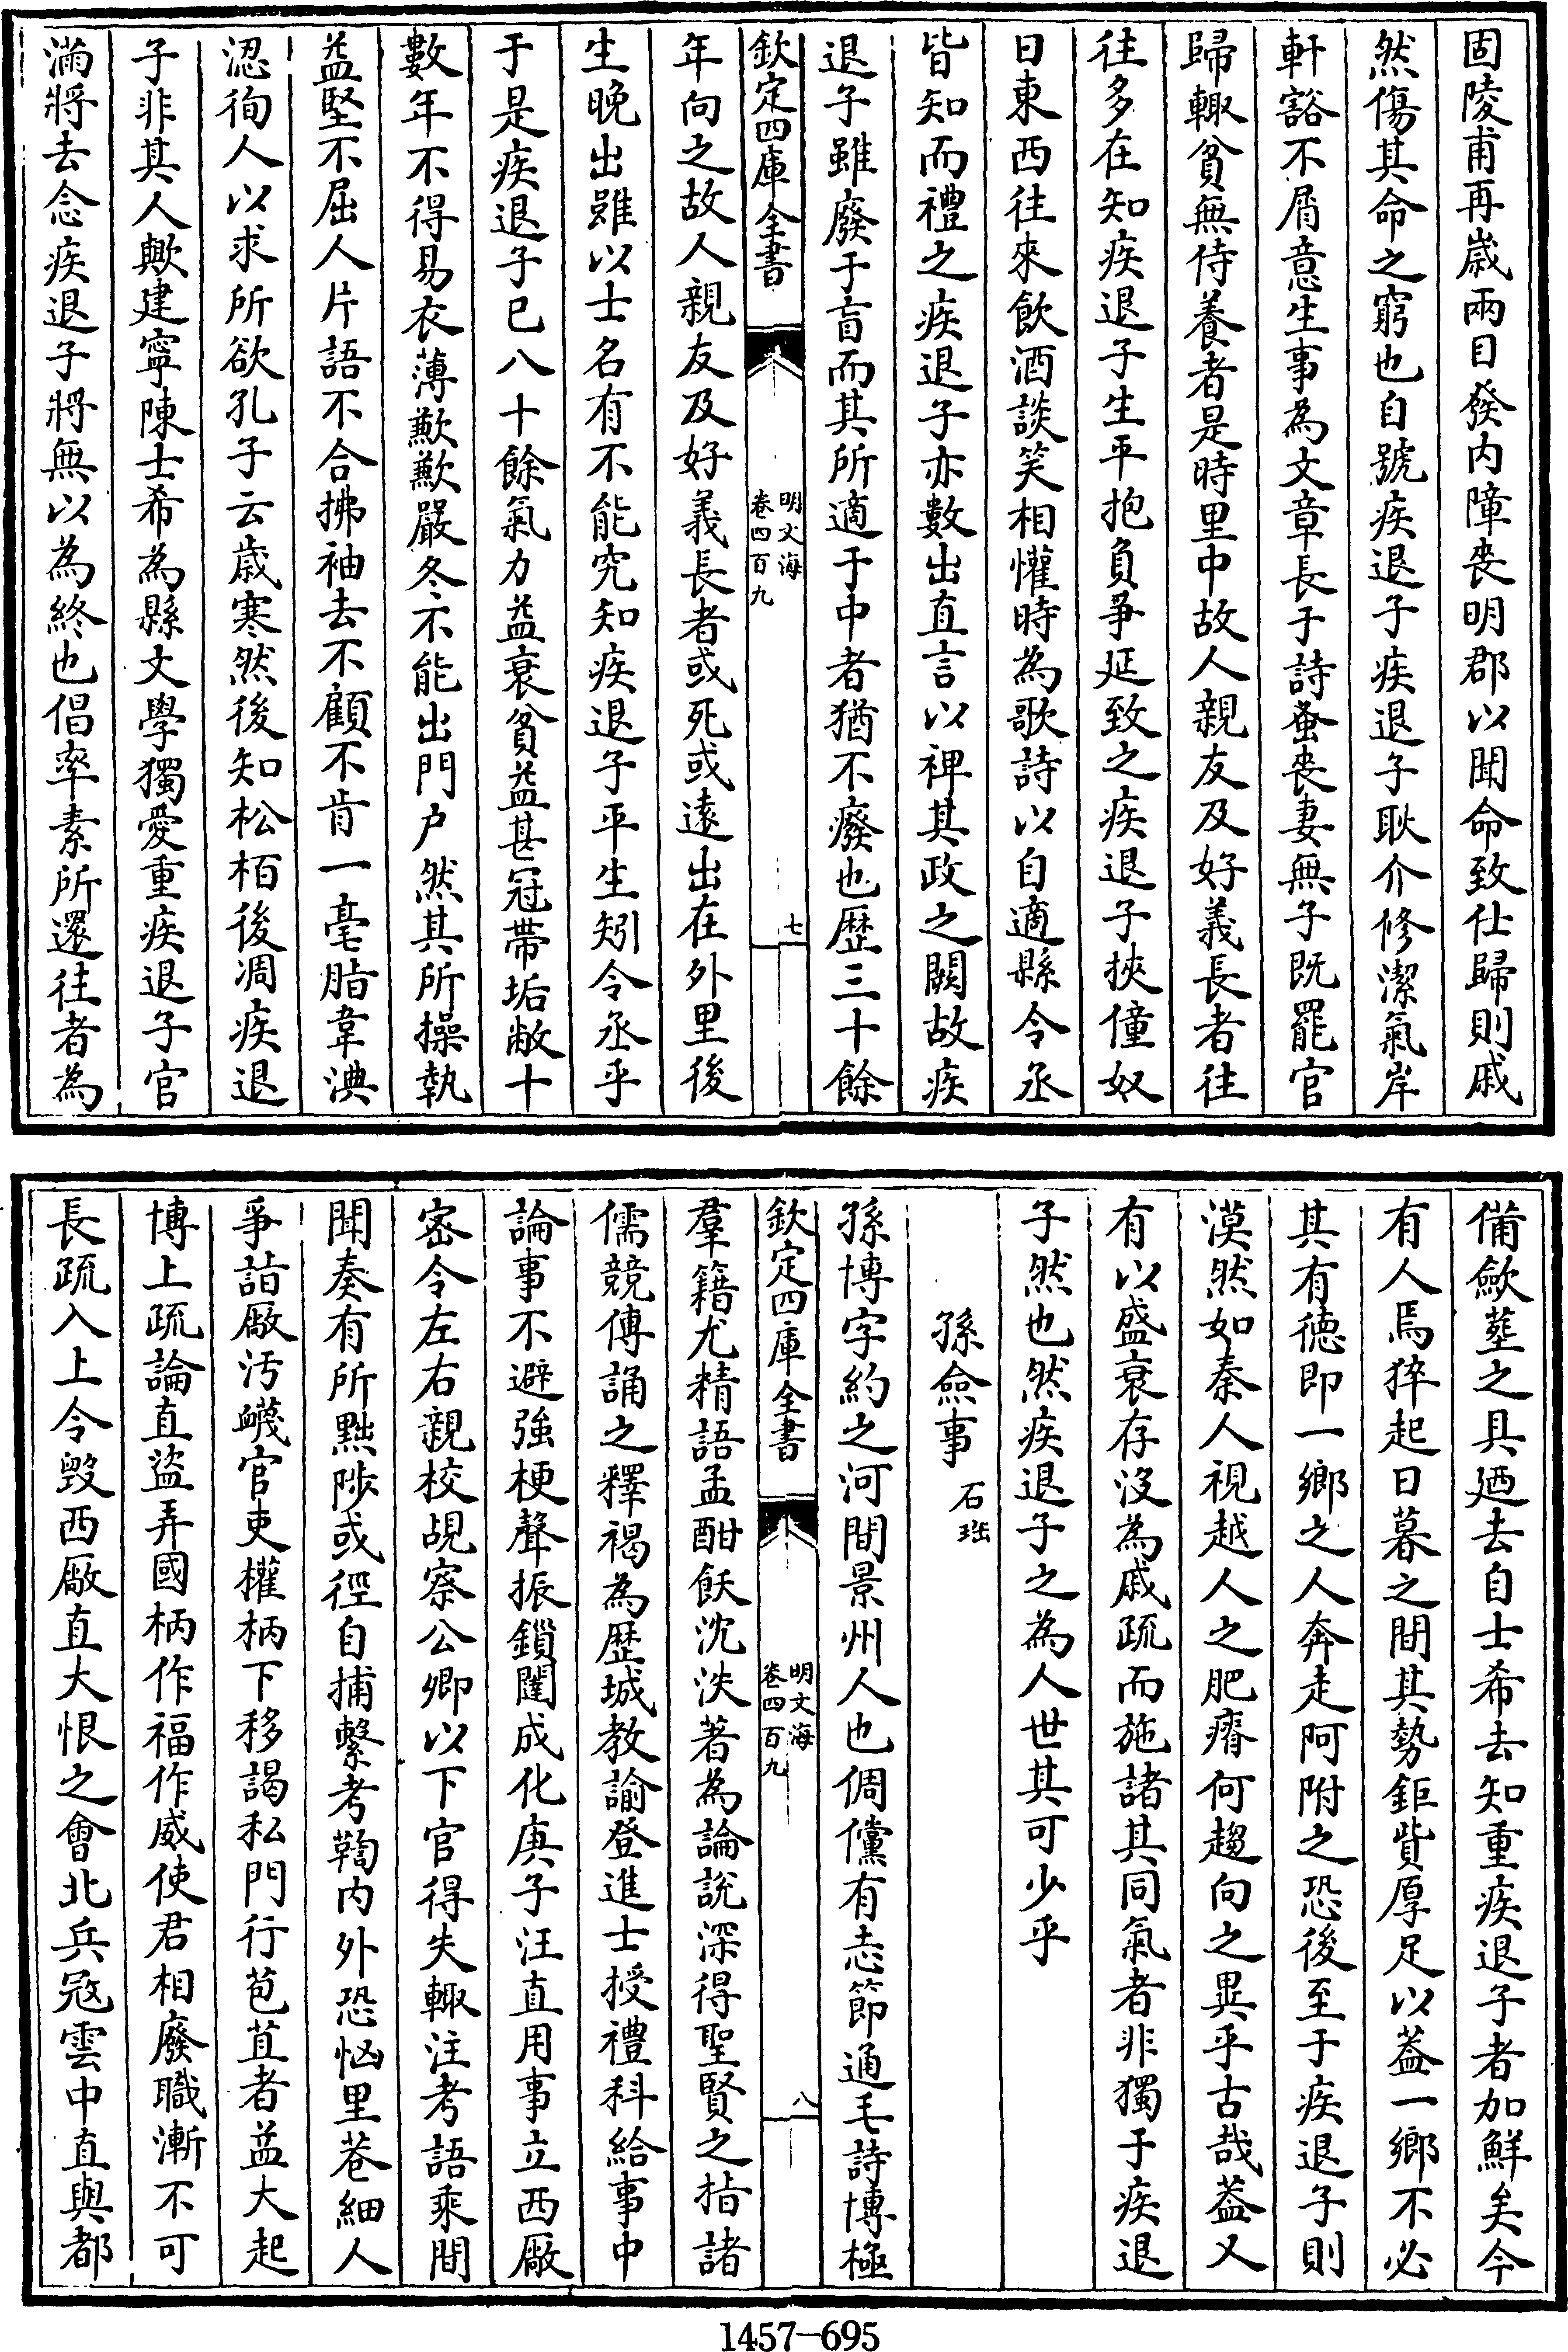 固陵甫再歲兩目發内障喪明郡以聞命致仕歸則戚
然傷其命之窮也自號疾退子疾退子耿介修潔氣岸
軒豁不屑意生事為文章長于詩蚤喪妻無子既罷官
歸輙貧無侍養者是時里中故人親友及好義長者往
往多在知疾退子生平抱負爭延致之疾退子挾僮奴
日東西往來飲酒談笑相懽時為歌詩以自適縣令丞
皆知而禮之疾退子亦數出直言以裨其政之闕故疾
退子雖廢于盲而其所適于中者猶不癈也歴三十餘
欽定四庫全書
明文海
卷四百九
七
年向之故人親友及好義長者或死或遠出在外里後
生晚出雖以士名有不能究知疾退子平生矧令丞乎
于是疾退子已八十餘氣力益衰貧益甚冠帶垢敝十
數年不得易衣薄歉歉嚴冬不能出門户然其所操執
益堅不屈人片語不合拂袖去不顧不肯一毫脂韋淟
涊徇人以求所欲孔子云歲寒然後知松栢後凋疾退
子非其人歟建寧陳士希為縣文學獨愛重疾退子官
滿將去念疾退子將無以為終也倡率素所還往者為
備歛塟之具廼去自士希去知重疾退子者加鮮矣今
有人焉猝起日暮之間其勢鉅貲厚足以葢一鄉不必
其有德即一鄉之人奔走阿附之恐後至于疾退子則
漠然如秦人視越人之肥瘠何趨向之異乎古哉葢又
有以盛衰存沒為戚疏而施諸其同氣者非獨于疾退
子然也然疾退子之為人世其可少乎
孫僉事 石珤
孫博字約之河間景州人也倜儻有志節通毛詩博極
欽定四庫全書
明文海
卷四百九
八
羣籍尤精語孟酣飫沈浹著為論說深得聖賢之指諸
儒競傳誦之釋褐為歴城教諭登進士授禮科給事中
論事不避強梗聲振鎖闥成化庚子汪直用事立西廠
密令左右親校覘察公卿以下官得失輙注考語乘間
聞奏有所黜陟或徑自捕繫考鞫内外恐恟里巷細人
爭詣廠汚衊官吏權柄下移謁私門行苞苴者益大起
博上疏論直盜弄國柄作福作威使君相廢職漸不可
長疏入上令毁西廠直大恨之會北兵冦雲中直與都
1457-695